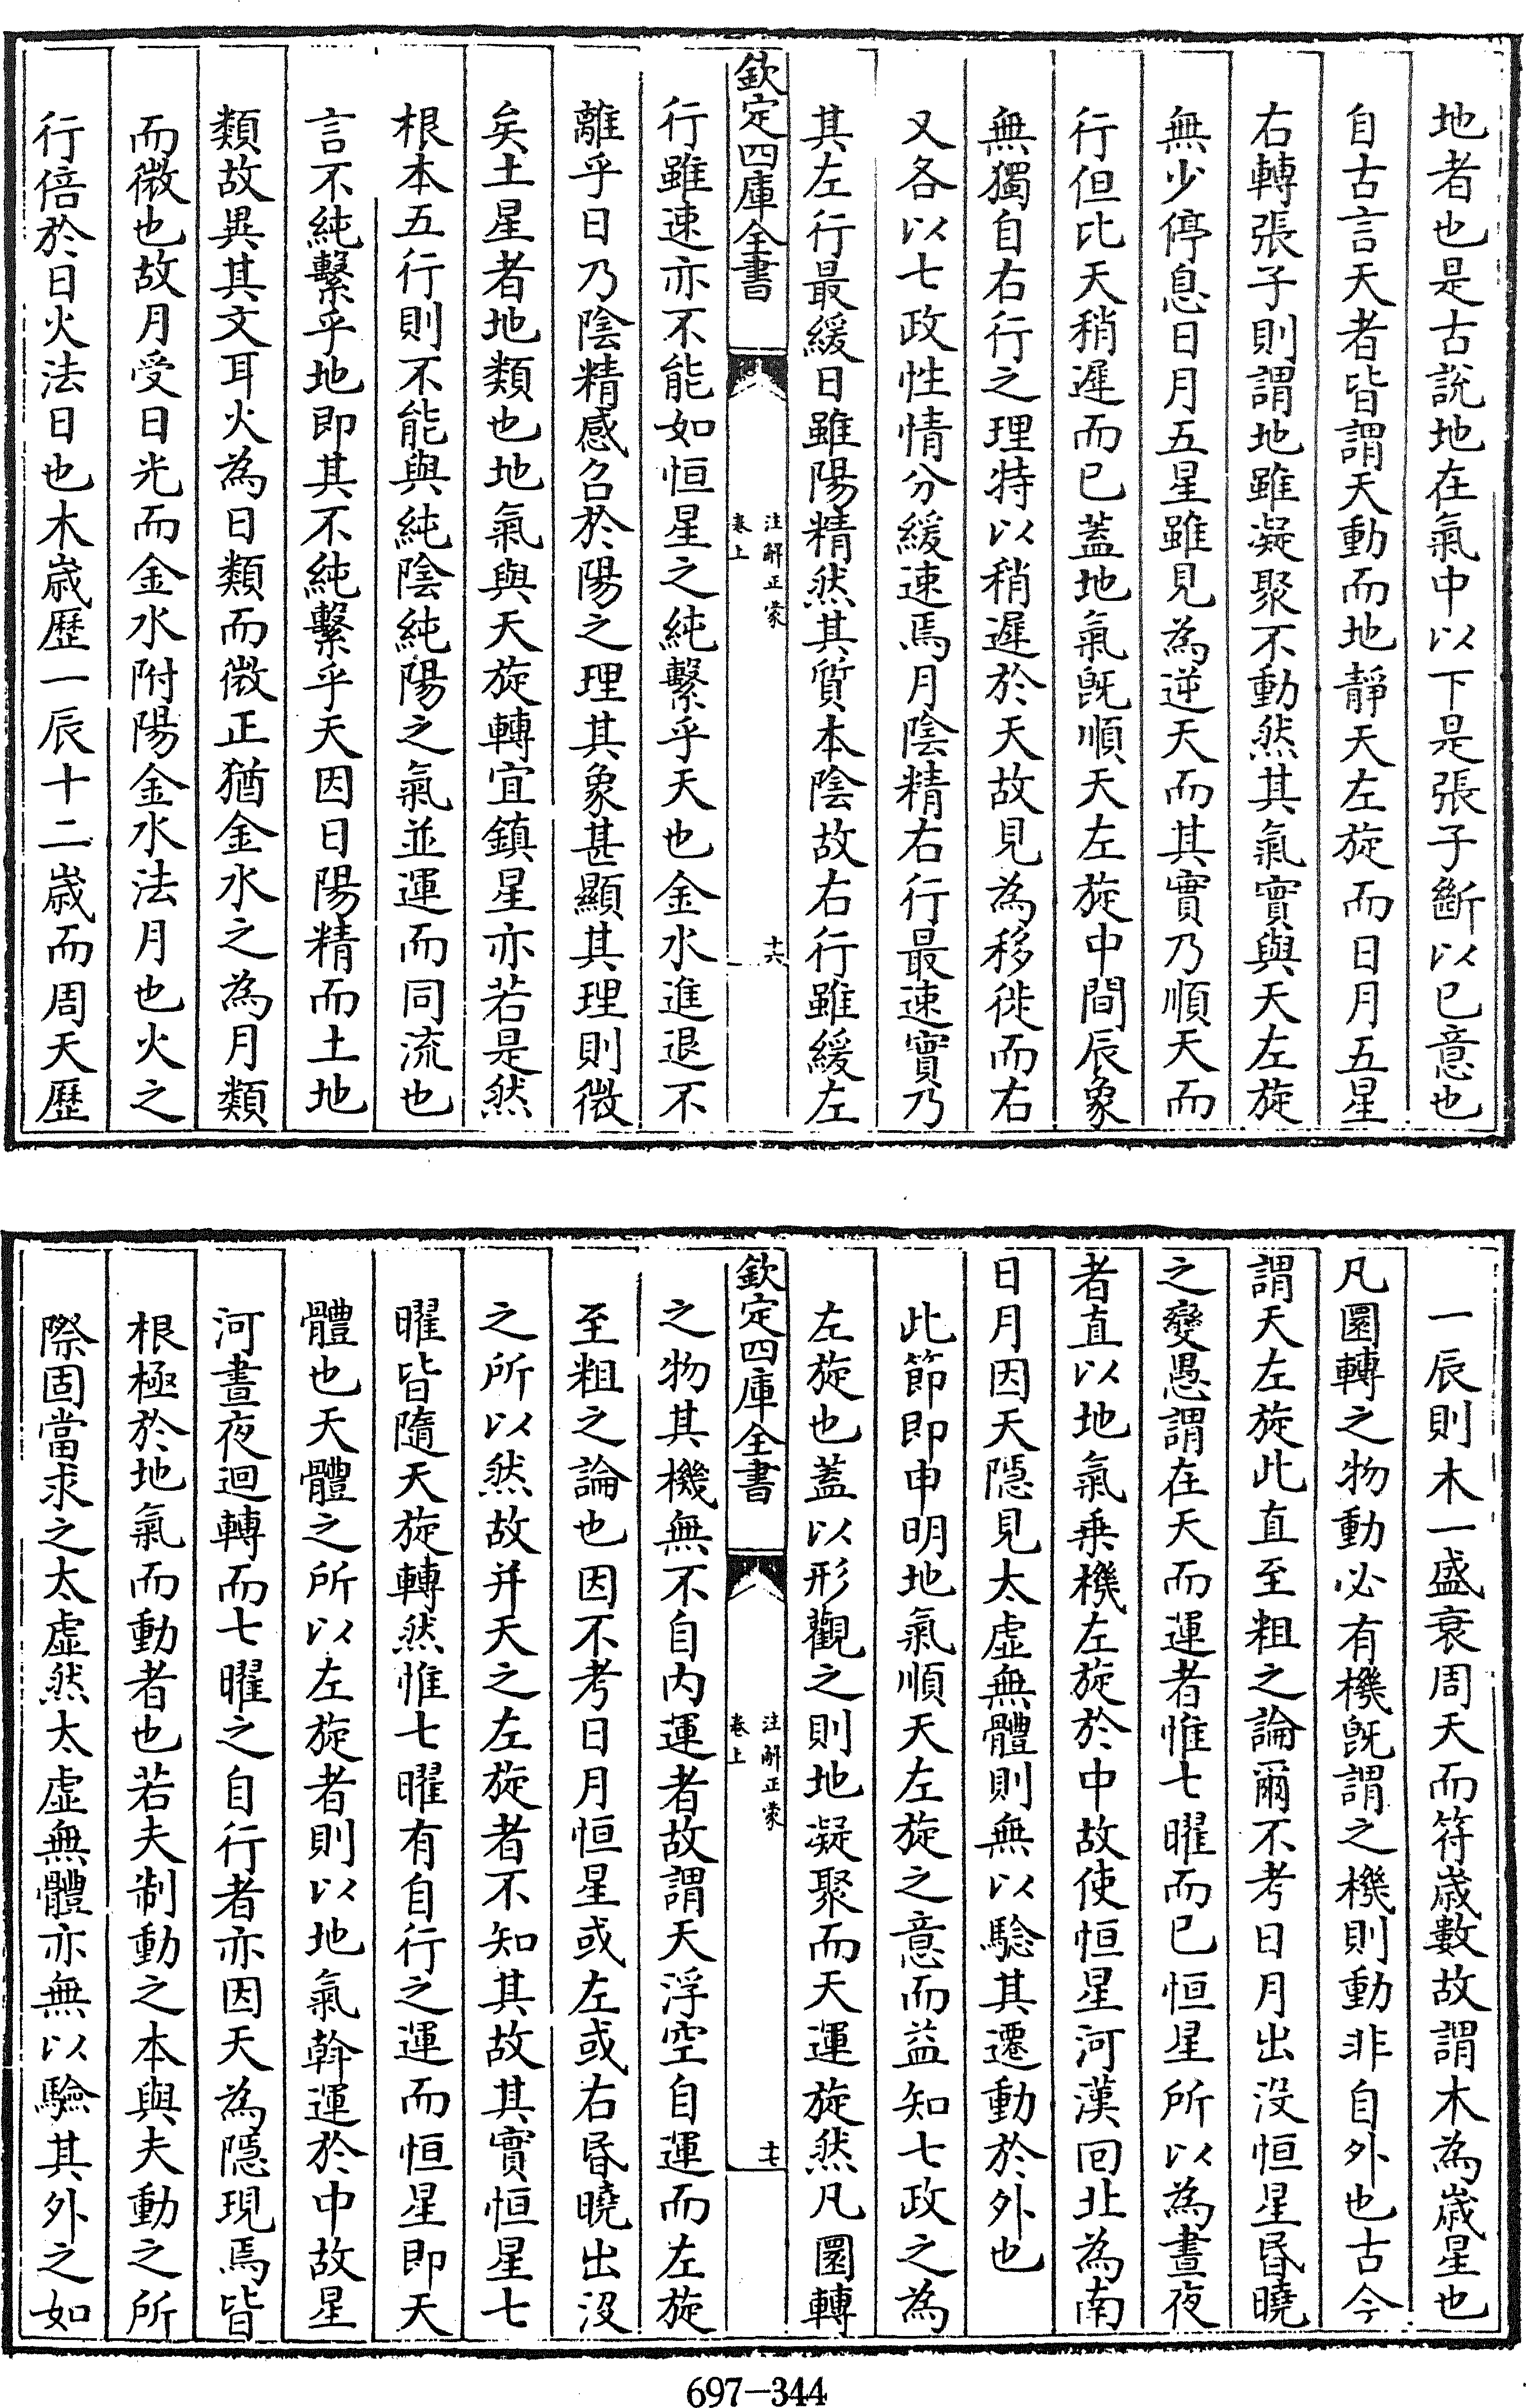 地者也是古說地在氣中以下是張子斷以已意也
自古言天者皆謂天動而地靜天左旋而日月五星
右轉張子則謂地雖凝聚不動然其氣實與天左旋
無少停息日月五星雖見為逆天而其實乃順天而
行但比天稍遲而已蓋地氣旣順天左旋中間辰象
無獨自右行之理特以稍遲於天故見為移徙而右
又各以七政性情分緩速焉月陰精右行最速實乃
其左行最緩日雖陽精然其質本陰故右行雖緩左
欽定四庫全書
注解正蒙
卷上
十六
行雖速亦不能如恒星之純繫乎天也金水進退不
離乎日乃陰精感召於陽之理其象甚顯其理則微
矣土星者地類也地氣與天旋轉宜鎮星亦若是然
根本五行則不能與純陰純陽之氣並運而同流也
言不純繫乎地即其不純繫乎天因日陽精而土地
類故異其文耳火為日類而微正猶金水之為月類
而微也故月受日光而金水附陽金水法月也火之
行倍於日火法日也木嵗歷一辰十二嵗而周天歷
一辰則木一盛衰周天而符嵗數故謂木為嵗星也
凡圜轉之物動必有機旣謂之機則動非自外也古今
謂天左旋此直至粗之論爾不考日月出没恒星昏曉
之變愚謂在天而運者惟七曜而已恒星所以為晝夜
者直以地氣乗機左旋於中故使恒星河漢回北為南
日月因天隱見太虚無體則無以騐其遷動於外也
此節即申明地氣順天左旋之意而益知七政之為
左旋也蓋以形觀之則地凝聚而天運旋然凡圜轉
欽定四庫全書
注解正蒙
卷上
十七
之物其機無不自内運者故謂天浮空自運而左旋
至粗之論也因不考日月恒星或左或右昏曉出沒
之所以然故并天之左旋者不知其故其實恒星七
曜皆隨天旋轉然惟七曜有自行之運而恒星即天
體也天體之所以左旋者則以地氣斡運於中故星
河晝夜迴轉而七曜之自行者亦因天為隱現焉皆
根極於地氣而動者也若夫制動之本與夫動之所
際固當求之太虚然太虚無體亦無以驗其外之如
697-344